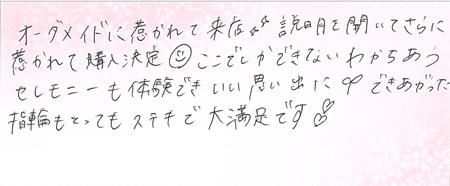 オーダメイドに惹かれて来店♪♪ 説明を聞いてさらに
惹かれて購入決定☺ ここでしかできないわかちあう
セレモニーも体験でき いい思い出に♡ できあがった
指輪もとってもステキで 大満足です♡